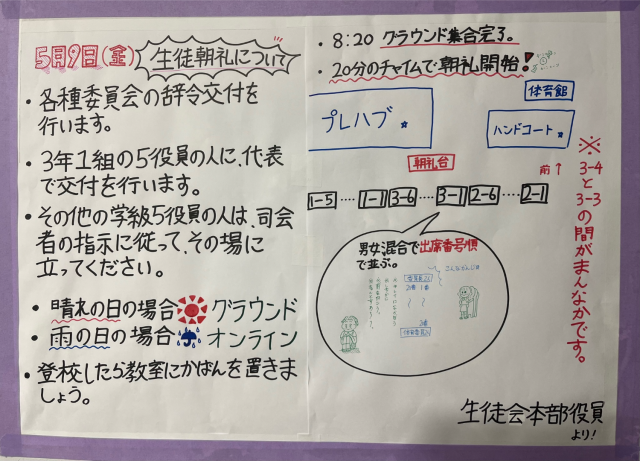 5月9日(金) 生徒朝礼について
・各種委員会の辞令交付を
行います。
・3年1組の5役員の人に、代表
で交付を行います。
・その他の学級5役員の人は、司会
者の指示に従って、その場に
立ってください。
・晴れの日の場合 グラウンド
・雨の日の場合 オンライン
・登校したら教室にかばんを置きま
しょう。
・8:20 グラウンド集合完了。
・20分のチャイムで朝礼開始!
体育館
プレハブ
ハンドコート
朝礼台
前↑
1-5 ‥‥ 1-1 3-6 ‥‥ 3-1 2-6 ‥‥ 2-1
男女混合で出席番号順
で並ぶ。
こんなかんじ
※3-4
と
3-3
の間がまんなかです。
生徒会本部役員
より!